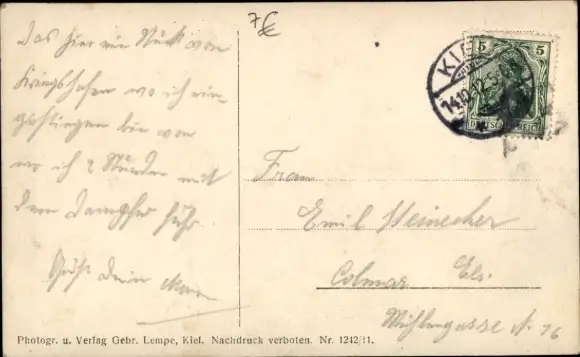 7 €
Das hier ein Stück vom
Kriegshafen wo ich ein-
gestiegen bin von
wo ich 2 Stunden mit
dem Dampfer fuhr.
Gruß Dein
KIEL
14.10.12.5-
5 5
DEUTSCHES REICH
Frau
Emil Steinecker
Colmar Els.
Mühlengasse N. 76
Photogr. u. Verlag Gebr. Lempe, Kiel. Nachdruck verboten. Nr. 1242/11.